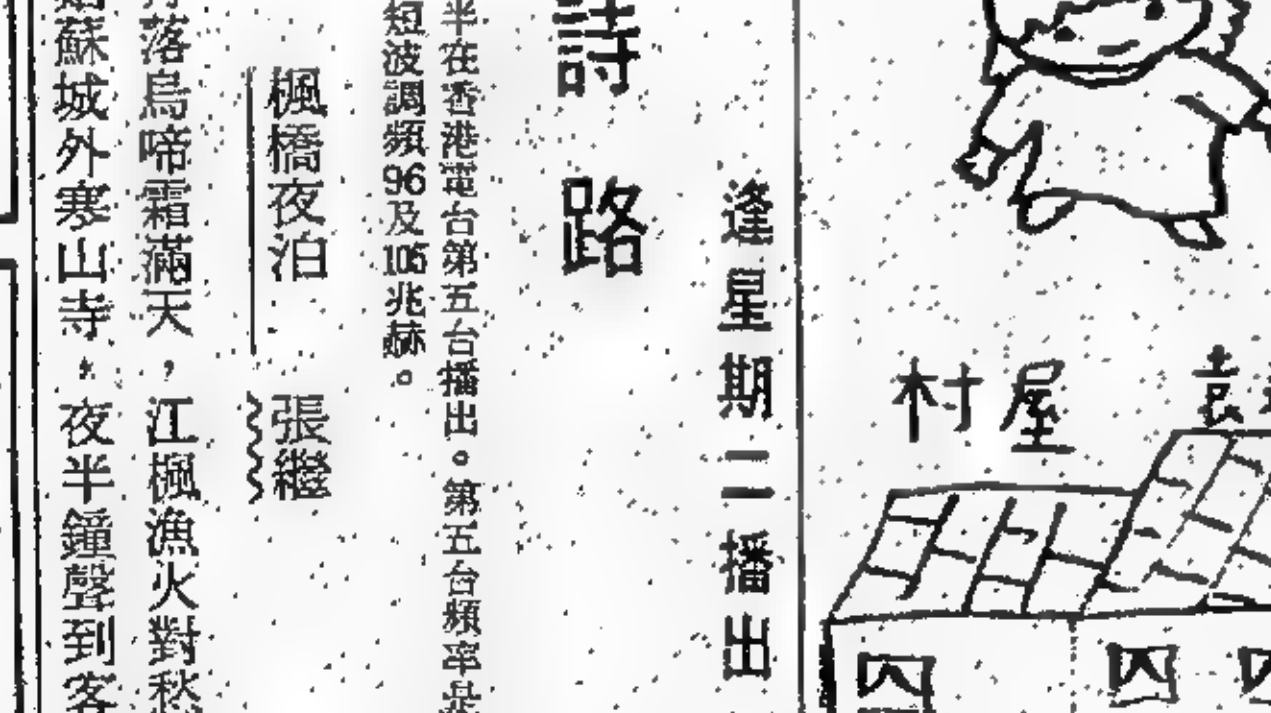 村屋
逢星期二播出
詩路
半在香港電台第五台播出。第五台頻率是
短波調頻96及105兆赫。
楓橋夜泊 張繼
落烏啼霜滿天，江楓漁火對愁
蘇城外寒山寺，夜半鐘聲到客